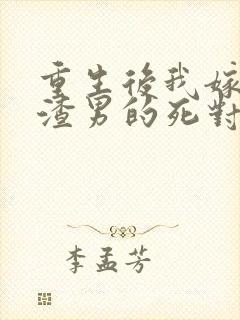 重生後我嫁
渣男的死對
李孟芳